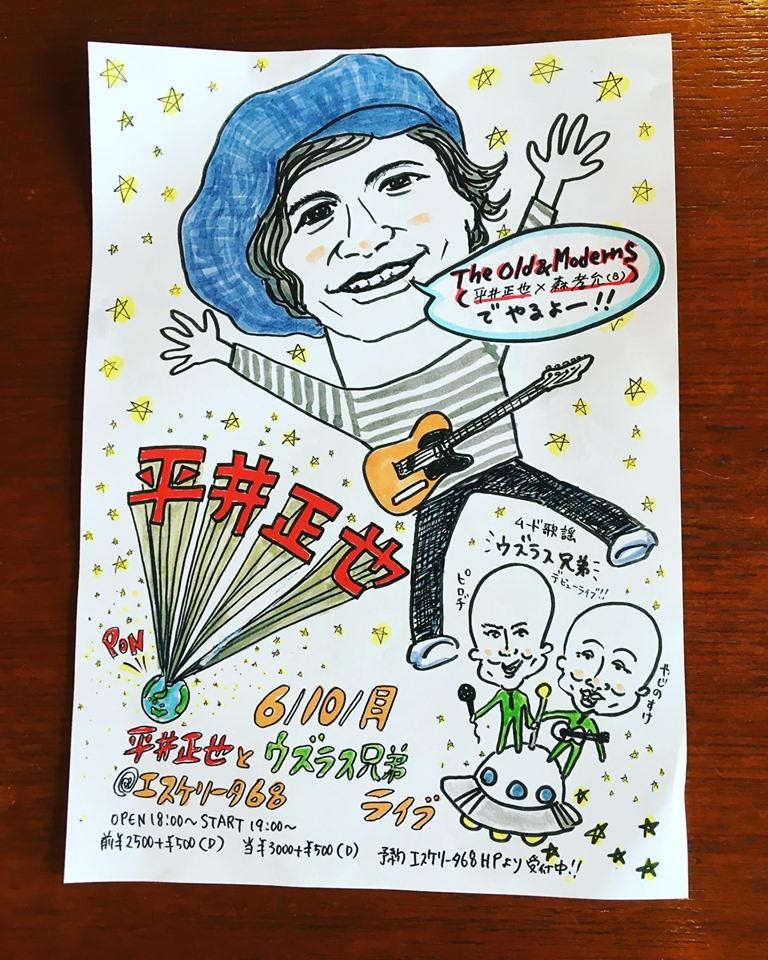 The Old & Moderns
(平井正也 × 森孝允(B))
でやるよー!!
平井正也
ムード歌謡
ウズラス兄弟
デビューライブ!!
ピロヂ
やじのすけ
PON
6/10/月
平井正也とウズラス兄弟
@エスケリータ68 ライブ
OPEN 18:00~ START 19:00~
前¥2500+¥500(D) 当¥3000+¥500(D) 予約エスケリータ68HPより受付中!!